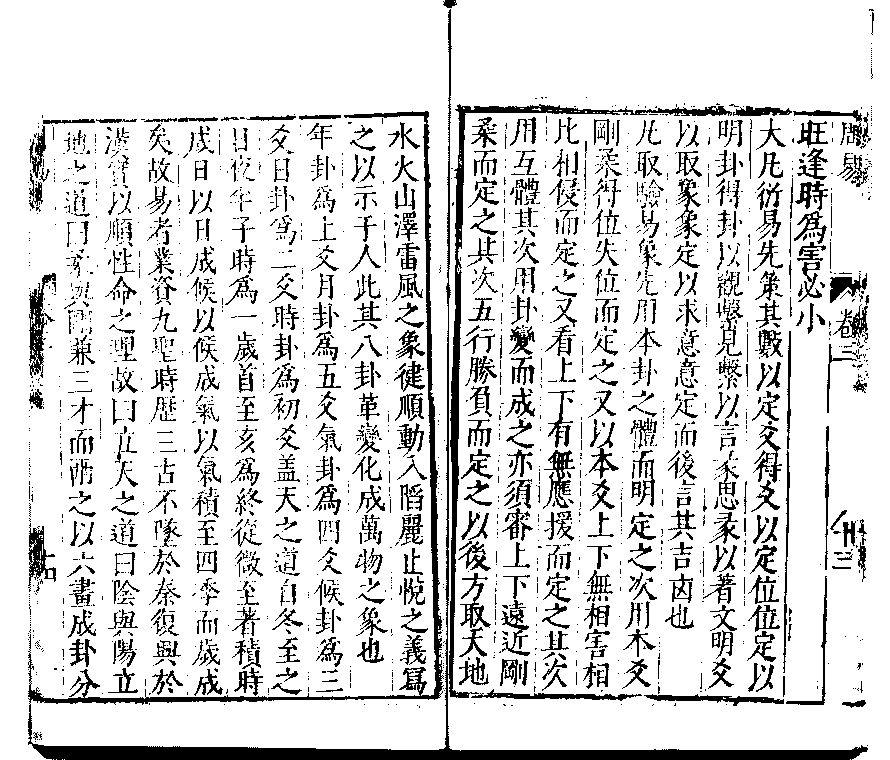 周易
卷三
十三
旺逢時爲害必小
大凡衍易先策其數以定爻得爻以定位位定以
明卦得卦以觀繫見繫以言彖思彖以著文明爻
以取象象定以求意意定而後言其吉凶也
凡取驗易象先用本卦之體而明定之次用本爻
剛柔得位失位而定之又以本爻上下無相害相
比相侵而定之又看上下有無應援而定之其次
用互體其次用卦變而成之亦須審上下遠近剛
柔而定之其次五行勝負而定之以後方取天地
水火山澤雷風之象健順動入陷麗止悅之義爲
之以示于人此其八卦革變化成萬物之象也
年卦爲上爻月卦爲五爻氣卦爲四爻候卦爲三
爻日卦爲二爻時卦爲初爻盖天之道自冬至之
日夜半子時爲一歲首至亥爲終從微至著積時
成日以日成候以候成氣以氣積至四季而歲成
矣故易者業資九聖時歷三古不墜於秦復興於
漢實以順性命之理故曰立天之道曰陰與陽立
地之道曰柔與剛兼三才而兩之以六畫成卦分
十四